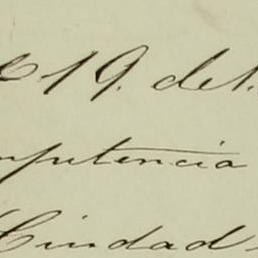 19. del
mpetencia
Ciudad